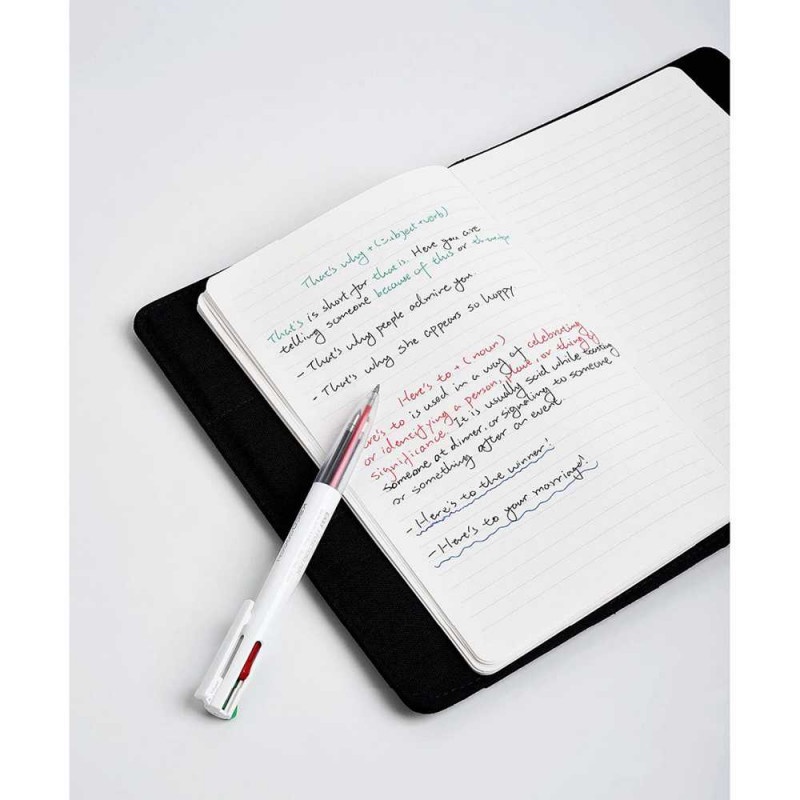 That's why + (subject + verb)
That's is short for that is. Here you are
telling someone because of this or
- That's why people admire you.
- That's why she appears so happy
Here's to + (noun)
re's to is used in a way of celebrating
or identifying a person, place, or thing of
significance. It is usually said while toasting
someone at dinner, or signaling to someone
or something after an event.
- Here's to the winner!
- Here's to your marriage!